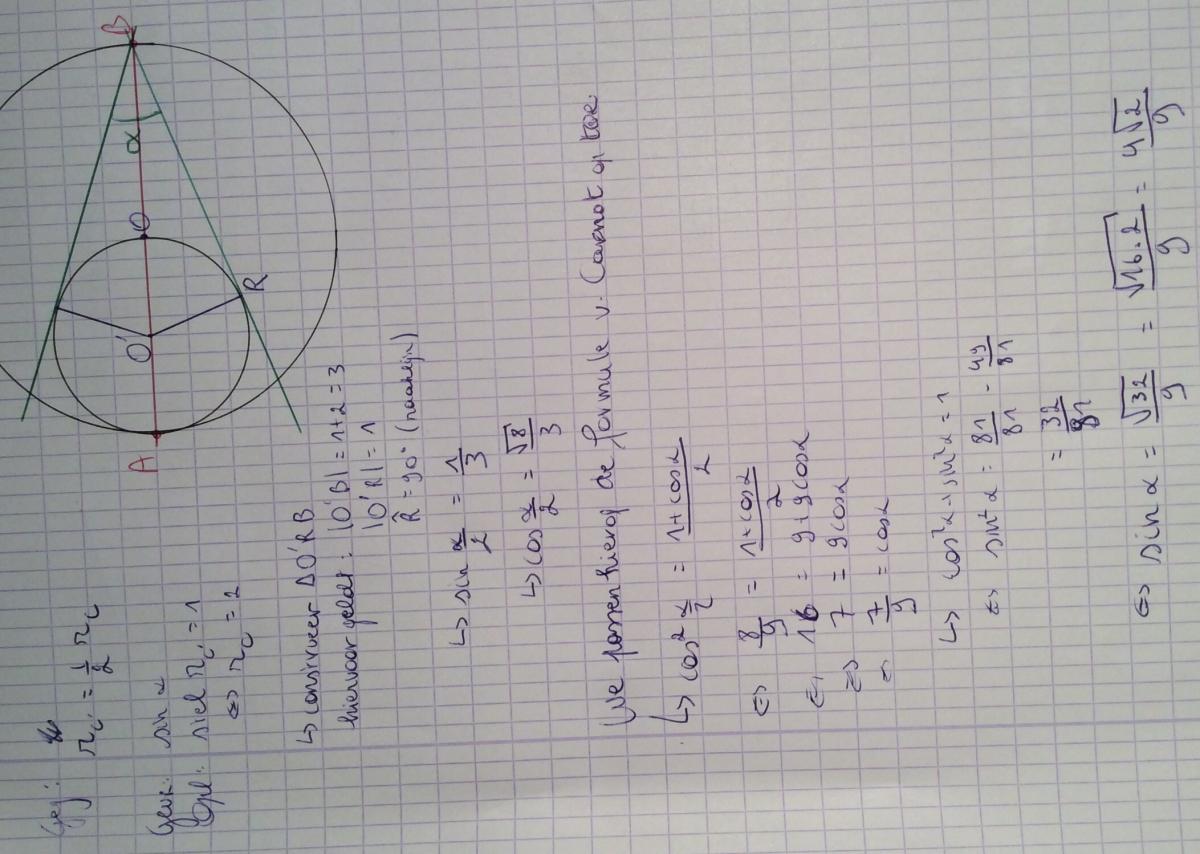 Geg:
r_c' = 1/2 r_c
Gevr: sin α
Opl: stel r_c' = 1
⇔ r_c = 2
B
α
O
O'
R
A
↳ construeer ΔO'RB
hiervoor geldt: |O'B| = 1+2 = 3
|O'R| = 1
R̂ = 90° (raaklijn)
↳ sin α/2 = 1/3
↳ cos α/2 = √8/3
We passen hierop de formule v. Carnot op toe.
↳ cos² α/2 = (1+cosα)/2
⇔ 8/9 = (1+cosα)/2
⇔ 16 = 9+9cosα
⇔ 7 = 9cosα
⇔ 7/9 = cosα
↳ cos²α+sin²α = 1
⇔ sin²α = 81/81 - 49/81
= 32/81
⇔ sin α = √32/9 = √16.2/9 = 4√2/9